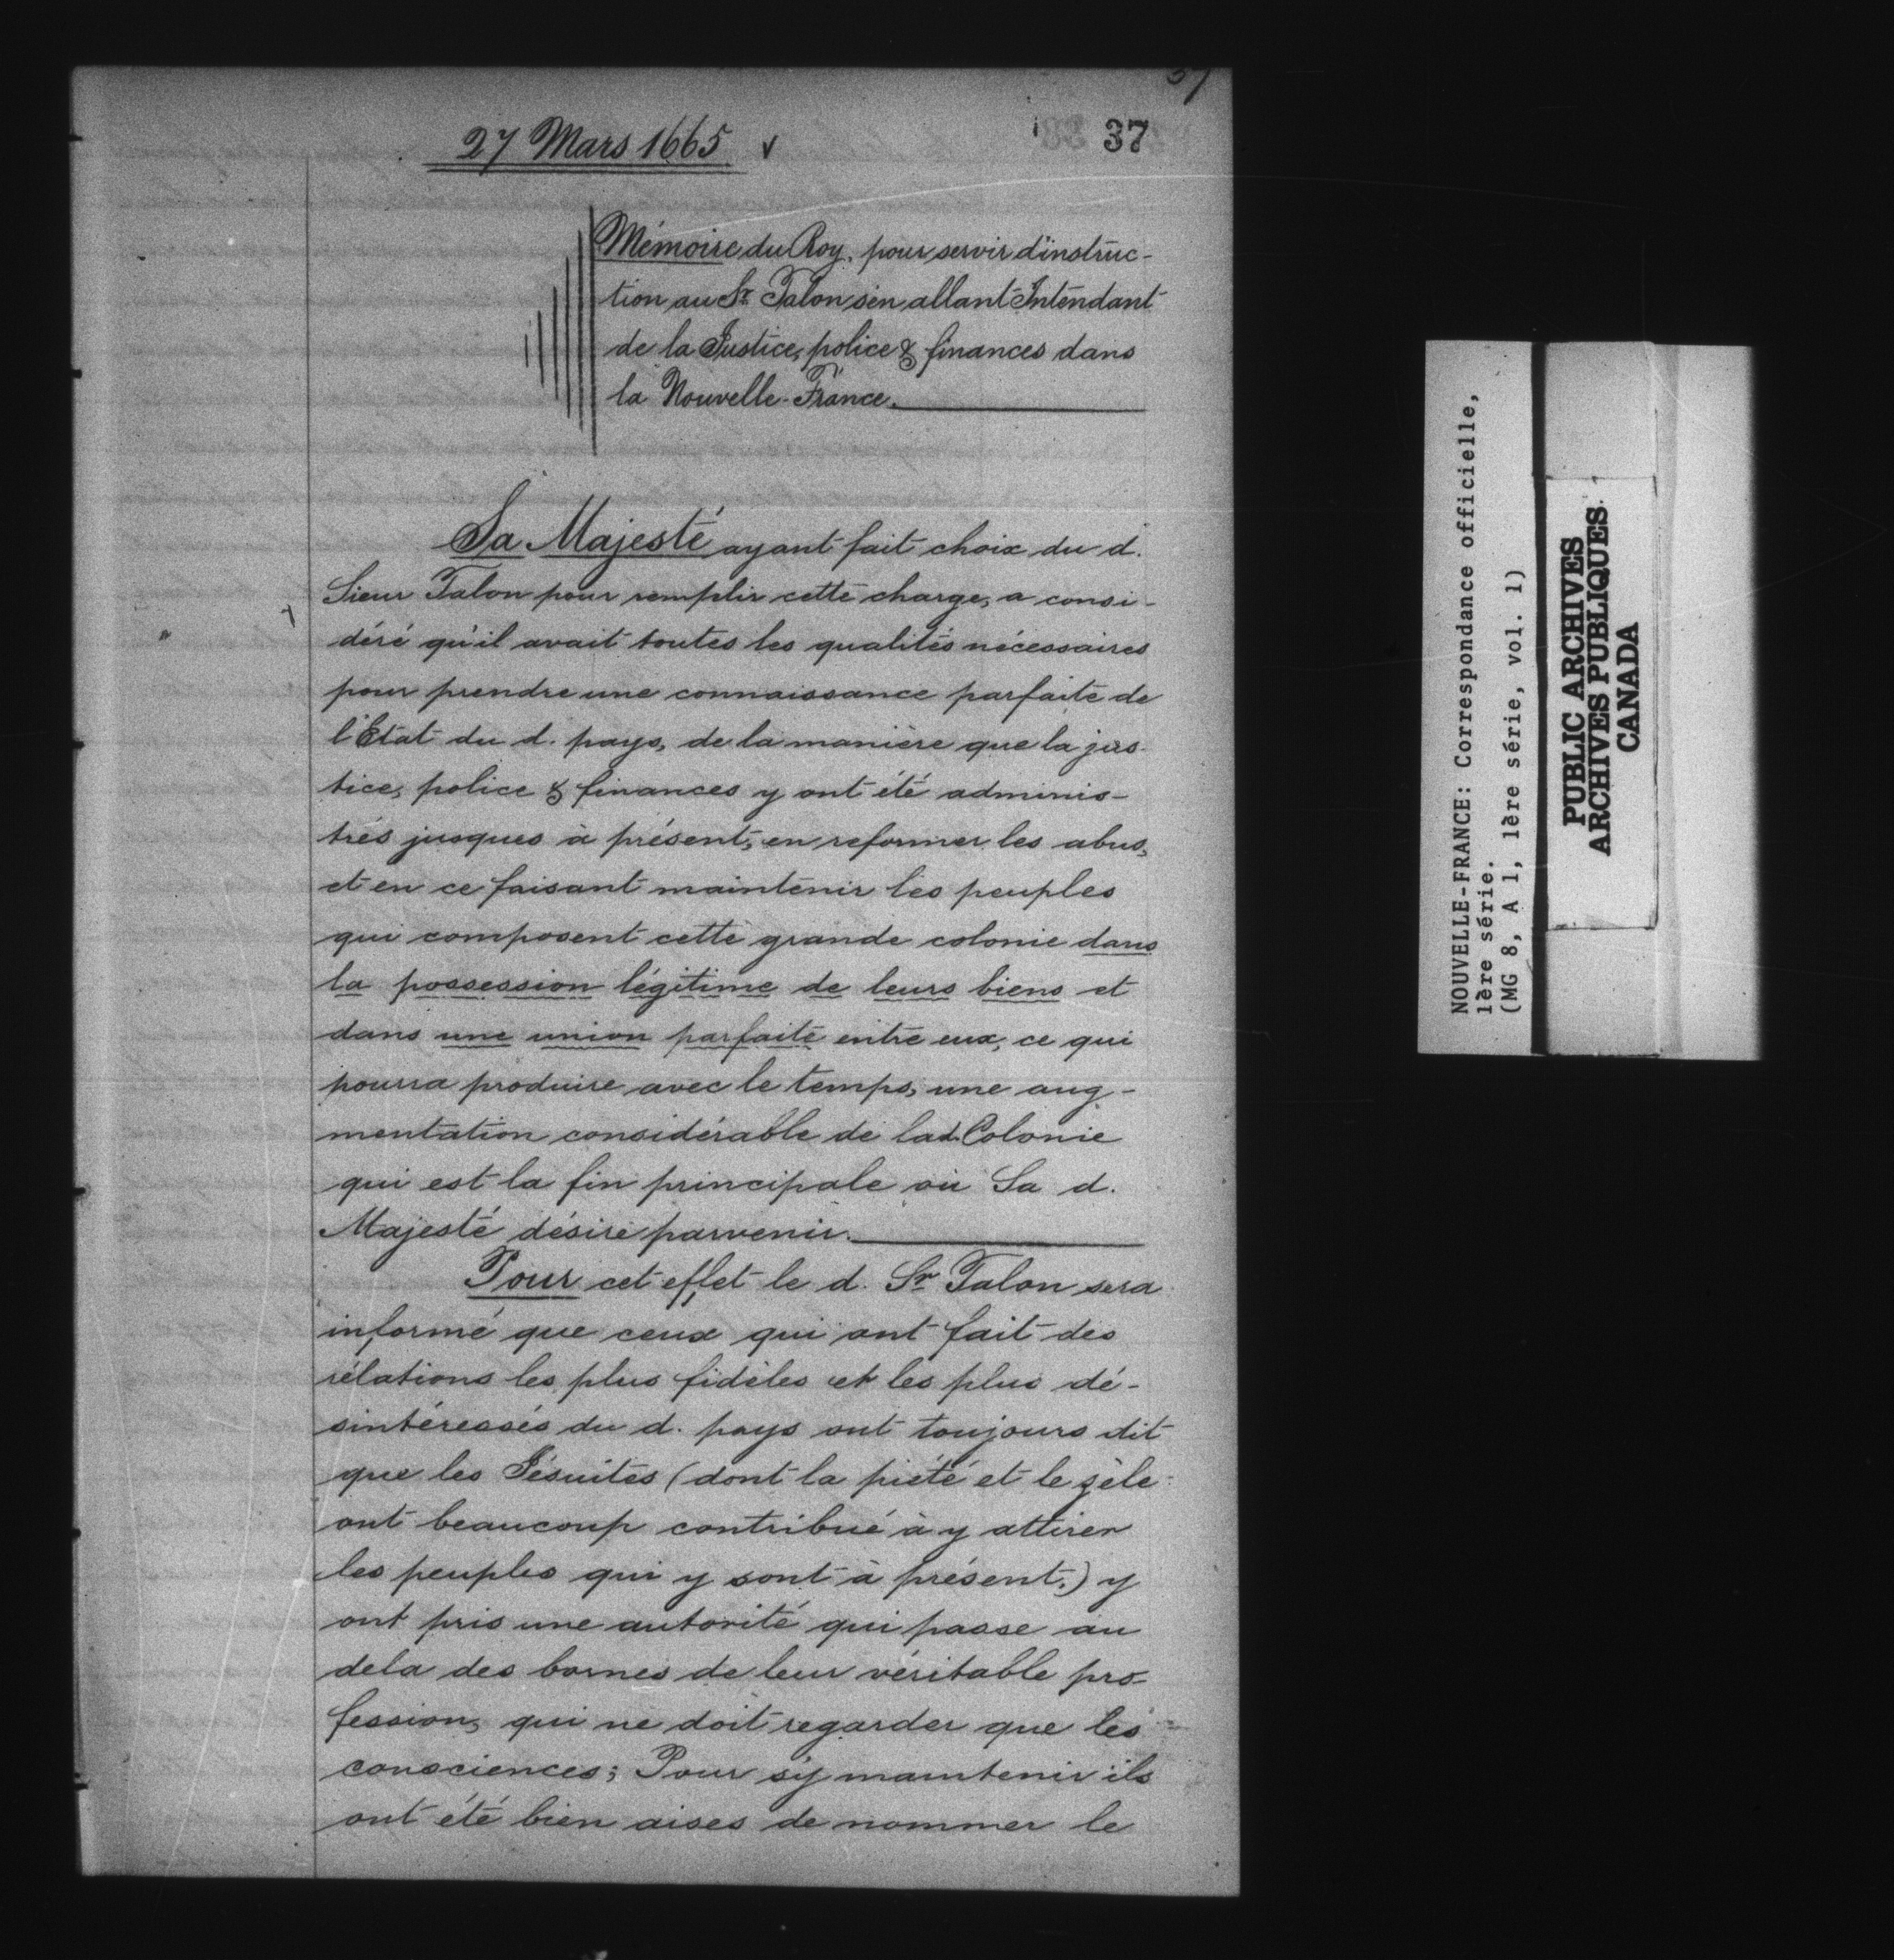 37
27 Mars 1665 v
37
Mémoire du Roy, pour servir d'instruc-
tion au Sr. Talon s'en allant Intendant
de la Justice, police & finances dans
la Nouvelle-France.
Sa Majesté ayant fait choix du d.
Sieur Talon pour remplir cette charge, a consi-
déré qu'il avait toutes les qualités nécessaires
pour prendre une connaissance parfaite de
l'Etat du d. pays, de la manière que la jus-
tice, police & finances y ont été adminis-
trés jusques à présent, en reformer les abus,
et en ce faisant maintenir les peuples
qui composent cette grande colonie dans
la possession légitime de leurs biens et
dans une union parfaite entre eux, ce qui
pourra produire avec le temps, une aug-
mentation considérable de lad. Colonie
qui est la fin principale où Sa d.
Majesté désire parvenir.
Pour cet effet le d. Sr Talon sera
informé que ceux qui ont fait des
rélations les plus fidèles et les plus dé-
sintéressés du d. pays ont toujours dit
que les Jésuites (dont la piété et le zèle
ont beaucoup contribué à y attirer
les peuples qui y sont à présent,) y
ont pris une autorité qui passe au
dela des bornes de leur véritable pro-
fession, qui ne doit regarder que les
consciences; Pour s'y maintenir ils
ont été bien aises de nommer le
NOUVELLE-FRANCE: Correspondance officielle,
1ère série.
(MG 8, A 1, 1ère série, vol. 1)
PUBLIC ARCHIVES
ARCHIVES PUBLIQUES
CANADA